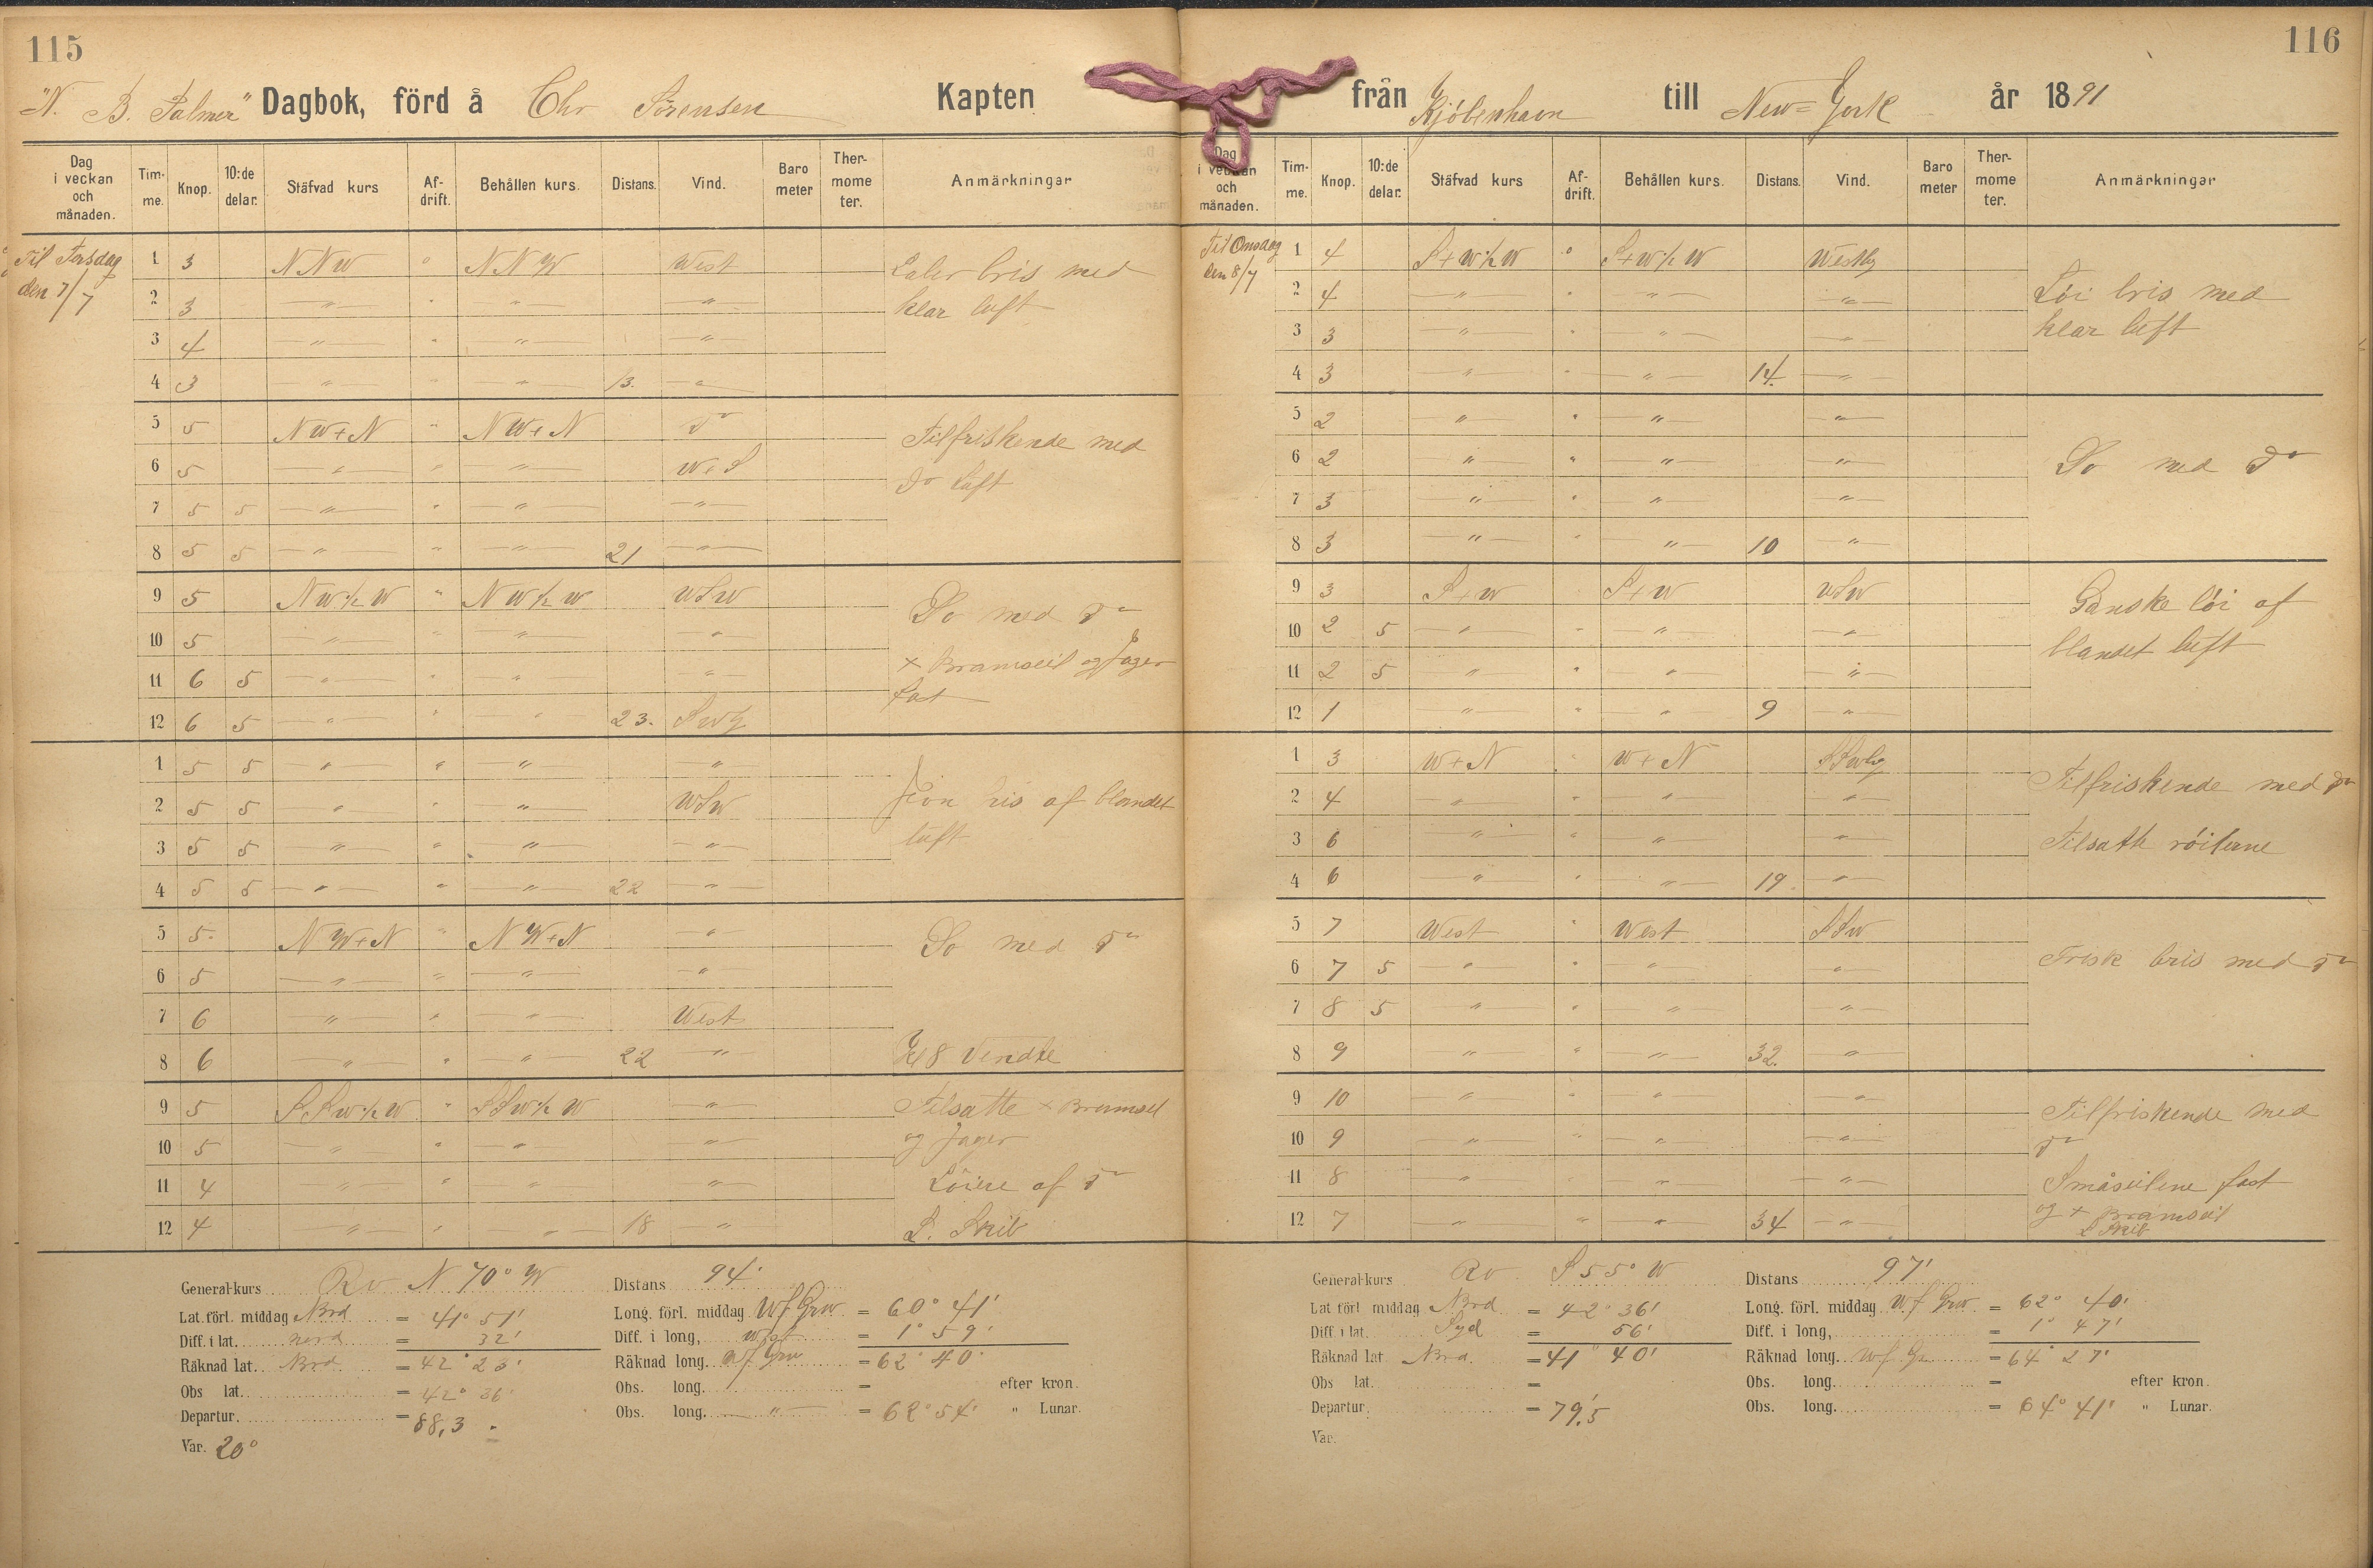 115
"N. B. Palmer" Dagbok, förd å Chr Sörensen Kapten
Dag i veckan och månaden. Tim-me. Knop. 10:de delar. Stäfvad kurs Af-drift. Behållen kurs. Distans. Vind. Baro meter Ther-mome ter. Anmärkningar
Til Tirsdag den 7/7
1 3 NNW " NNW West Laber bris med
2 3 " " " " klar luft
3 4 " " " "
4 3 " " " 13. "
5 5 NW+N " NW+N do Tilfriskende med
6 5 " " " W+S do luft
7 5 5 " " " "
8 5 5 " " " 21 "
9 5 NW½W " NW½W WSW Do med do
10 5 " " " "
11 6 5 " " " " + Bramseil og Jager
12 6 5 " " " 23. SWlg fast
1 5 5 " " " "
2 5 5 " " " WSW Jevn bris af blandet
3 5 5 " " " " luft
4 5 5 " " " 22 "
5 5 NW+N " NW+N " Do med do
6 5 " " " "
7 6 " " " West
8 6 " " " 22 " Kl 8 Vendte
9 5 SSW½W " SSW½W " Tilsatte + Bramseil
10 5 " " " " og Jager
11 4 " " " " Löiere af do
12 4 " " " 18 " L. Skib
General-kurs Rv N 70° W Distans 94'
Lat. förl. middag Nord = 41° 51' Long. förl. middag W f Grw = 60° 41'
Diff. i lat. nord = 32' Diff. i long, West = 1° 59'
Räknad lat. Nord = 42° 23' Räknad long. W f Grw = 62° 40'
Obs lat. = 42° 36' Obs. long. = efter kron.
Departur. = 88,3 Obs. long. " = 62° 54' " Lunar.
Var. 20°
116
från Kjöbenhavn till New=York år 1891
Dag i veckan och månaden. Tim-me. Knop. 10:de delar. Stäfvad kurs Af-drift. Behållen kurs. Distans. Vind. Baro meter Ther-mome ter. Anmärkningar
Til Onsdag den 8/7
1 4 S+W½W " S+W½W Westlg
2 4 " " " " Löi bris med
3 3 " " " " klar luft
4 3 " " " 14. "
5 2 " " " "
6 2 " " " " Do med do
7 3 " " " "
8 3 " " " 10 "
9 3 S+W " S+W WSW Ganske löi af
10 2 5 " " " " blandet luft
11 2 5 " " " "
12 1 " " " 9 "
1 3 W+N " W+N SSWlg Tilfriskende med do
2 4 " " " "
3 6 " " " " Tilsatte röilerne
4 6 " " " 19 "
5 7 West " West SSW
6 7 5 " " " " Frisk bris med do
7 8 5 " " " "
8 9 " " " 32. "
9 10 " " " " Tilfriskende med
10 9 " " " " do
11 8 " " " " Småseilene fast
12 7 " " " 34 " og + Bramseil
L Skib
General-kurs Rv S 55° W Distans 97'
Lat förl middag Nord = 42° 36' Long. förl. middag W f Grw = 62° 40'
Diff. i lat. Syd = 56' Diff. i long, = 1° 47'
Räknad lat Nord = 41° 40' Räknad long. W f Gr = 64° 27'
Obs lat. = Obs. long. = efter kron.
Departur. = 79,5 Obs. long. = 64° 41' " Lunar.
Var.